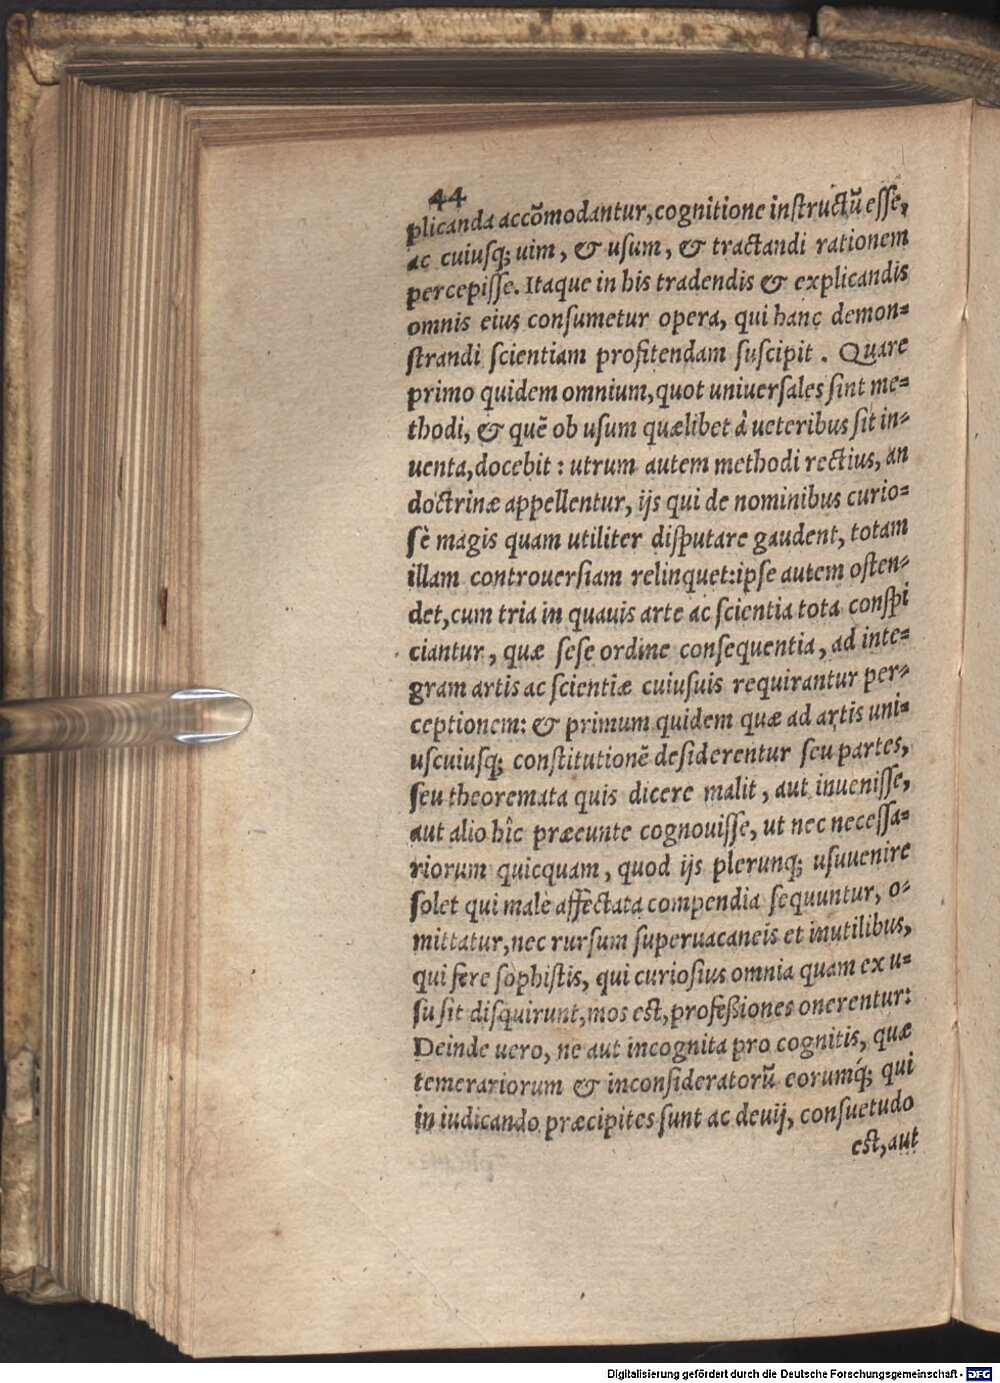 44
plicanda accōmodantur, cognitione instructū esse,
ac cuiusq; uim, & usum, & tractandi rationem
percepisse. Itaque in his tradendis & explicandis
omnis eius consumetur opera, qui hanc demon=
strandi scientiam profitendam suscipit. Quare
primo quidem omnium, quot uniuersales sint me=
thodi, & quē ob usum quælibet à ueteribus sit in=
uenta, docebit: utrum autem methodi rectius, an
doctrinæ appellentur, ijs qui de nominibus curio=
sè magis quam utiliter disputare gaudent, totam
illam controuersiam relinquet: ipse autem osten=
det, cum tria in quauis arte ac scientia tota conspi
ciantur, quæ sese ordine consequentia, ad inte=
gram artis ac scientiæ cuiusuis requirantur per=
ceptionem: & primum quidem quæ ad artis uni=
uscuiusq; constitutionē desiderentur seu partes,
seu theoremata quis dicere malit, aut inuenisse,
aut alio hîc præeunte cognouisse, ut nec necessa=
riorum quicquam, quod ijs plerunq; usuuenire
solet qui malè affectata compendia sequuntur, o=
mittatur, nec rursum superuacaneis et inutilibus,
qui fere sophistis, qui curiosius omnia quam ex u=
su sit disquirunt, mos est, professiones onerentur:
Deinde uero, ne aut incognita pro cognitis, quæ
temerariorum & inconsideratorū eorumq́; qui
in iudicando præcipites sunt ac deuij, consuetudo
est, aut
Digitalisierung gefördert durch die Deutsche Forschungsgemeinschaft - DFG